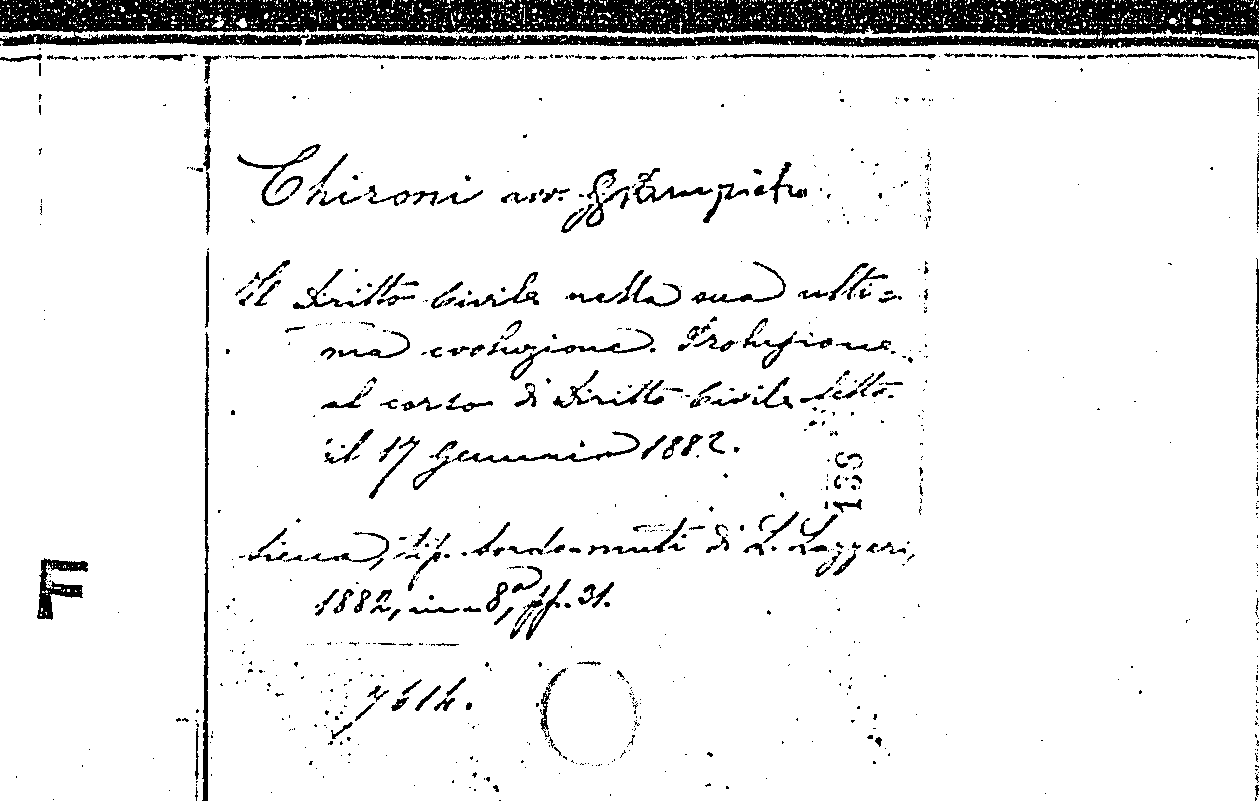 Chironi avv. Giampietro.
Il Diritto Civile nella sua ulti=
ma evoluzione. Prolusione
al corso di Diritto Civile letta
il 17 Gennaio 1882.
Siena, tip. Sordo-muti di L. Lazzeri,
1882, in 8°, pp. 31.
7614.
F